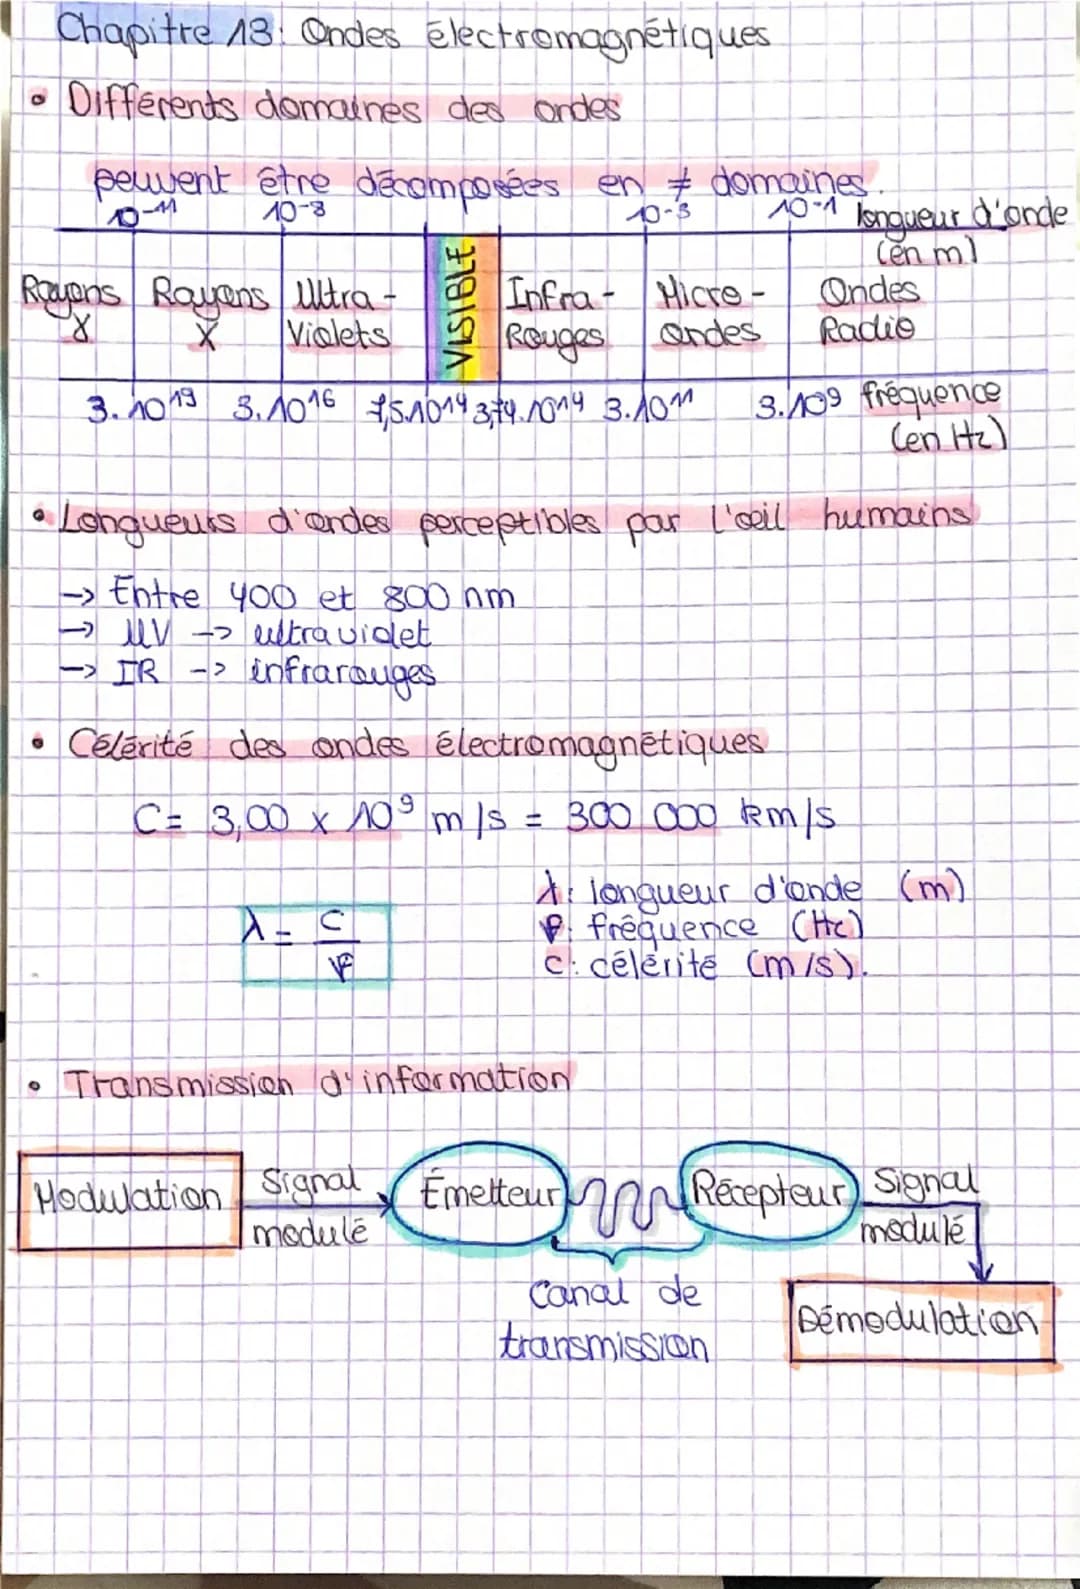 Chapitre 13: Ondes électromagnétiques
• Différents domaines des ondes
peuvent être décomposées en ≠ domaines.
10⁻¹¹ 10⁻⁸ 10⁻³ 10⁻¹ longueur d'onde
(en m)
Rayons Rayons Ultra- VISIBLE Infra- Micro- Ondes
γ X Violets Rouges ondes Radio
3.10¹⁹ 3.10¹⁶ 7,5.10¹⁴ 3,74.10¹⁴ 3.10¹¹ 3.10⁹ fréquence
(en Hz)
• Longueurs d'ondes perceptibles par l'œil humains
-> Entre 400 et 800 nm
-> UV -> ultraviolet
-> IR -> infrarouges
• Célérité des ondes électromagnétiques
C = 3,00 x 10⁹ m/s = 300 000 km/s
λ: longueur d'onde (m)
λ = c/f
f: fréquence (Hz)
c: célérité (m/s).
• Transmission d'information
Modulation Signal Émetteur Récepteur Signal
modulé modulé
Canal de
transmission
Démodulation